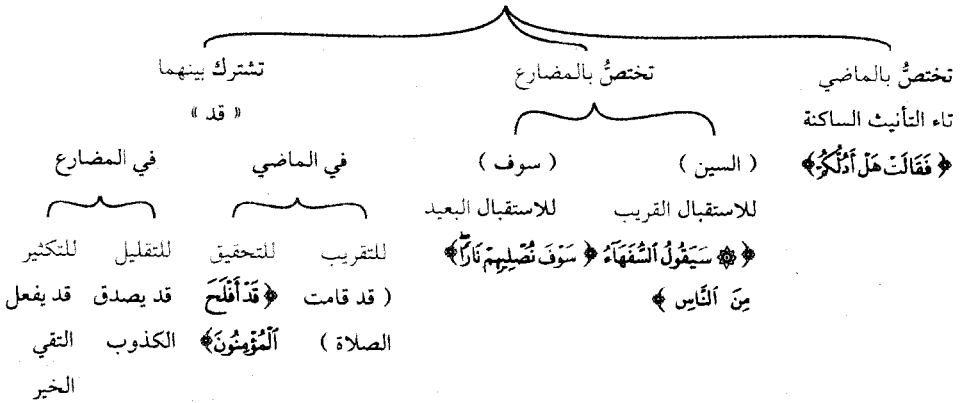 تختصُّ بالماضي
تاء التأنيث الساكنة
﴿ فَقَالَتْ هَلْ أَدُلُّكُمْ ﴾
تختصُّ بالمضارع
( السين )
للاستقبال القريب
﴿ ۞ سَيَقُولُ السُّفَهَاءُ
مِنَ النَّاسِ ﴾
( سوف )
للاستقبال البعيد
﴿ سَوْفَ نُصْلِيهِمْ نَارًا ﴾
تشترك بينهما
« قد »
في الماضي
للتقريب
( قد قامت
الصلاة )
للتحقيق
﴿ قَدْ أَفْلَحَ
الْمُؤْمِنُونَ ﴾
في المضارع
للتقليل
قد يصدق
الكذوب
للتكثير
قد يفعل
التقي
الخير